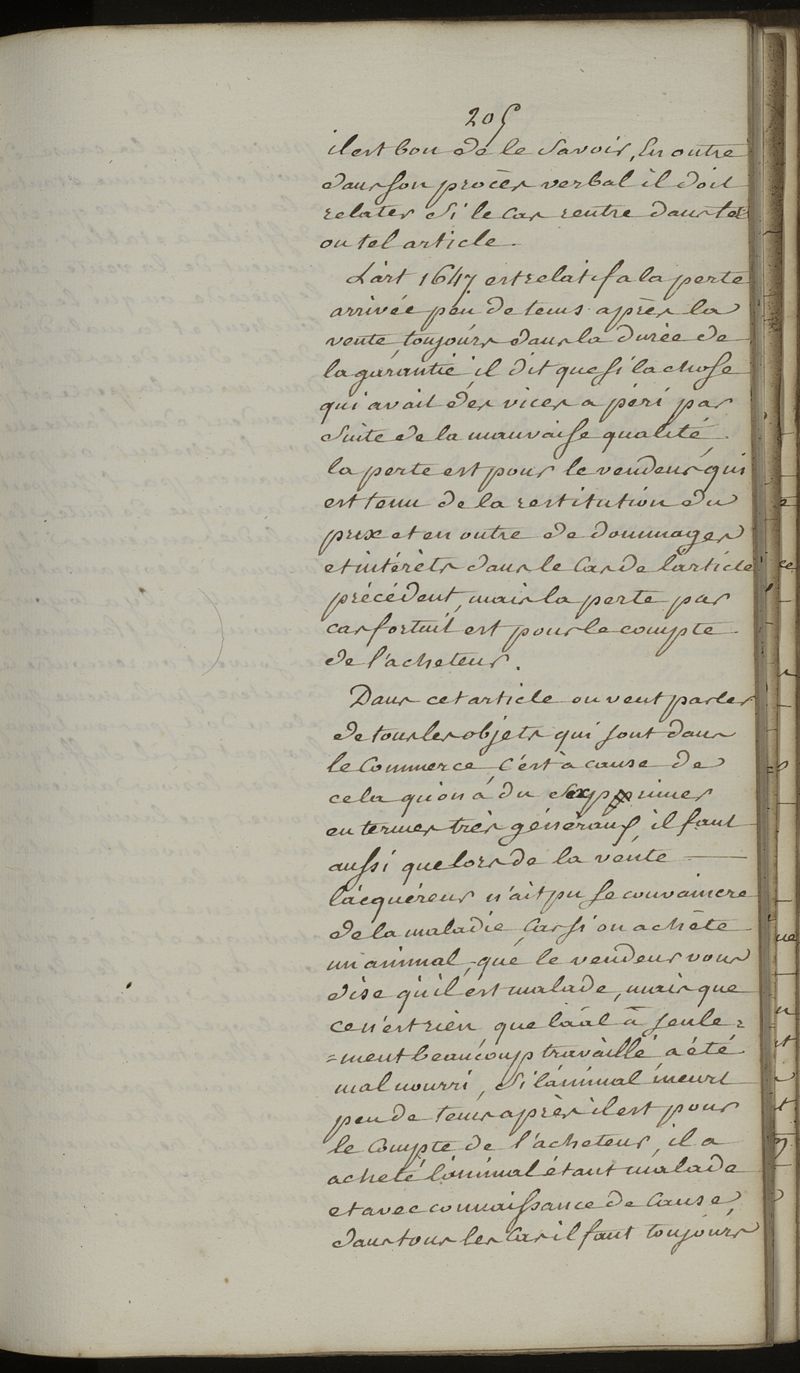 205
il est bon de le Savoir, En outre
dans son procès verbal il doit
relater Si le cas rentre dans tel
ou tel article.
L'art 1647 est relatif a la perte
arrivée peu de tems après la
vente toujours dans la durée de
la garantie, il dit que si la chose
qui avait des vices a péri par
Suite de la mauvaise qualité,
la perte est pour le vendeur qui
est tenu de la restitution du
prix et en outre de dommages
et intérèts dans le Cas de l'article
précédent, mais la perte par
cas fortuit est pour le compte
de l'acheteur.
Dans cet article on veut parler
de tous les objets qui sont dans
le Commerce, c'est à cause de
cela qu'on a du S'exprimer
en termes très généraux, il faut
aussi que lors de la vente —
l'acquéreur n'ait pu se convaincre
de la maladie, Car si on achète
un animal, que le vendeur vous
dise qu'il est malade, mais que
ce n'est rien que l'aal à seule=
=ment beaucoup travaillé, a été
mal nourri, Si l'animal meurt
peu de tems après il est pour
le Compte de l'acheteur, il a
acheté l'animal étant malade
et avec connaissance de Cause,
dans tous les Cas il faut toujours